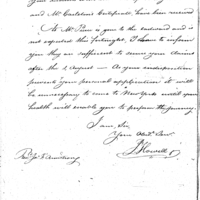 and Mr Carletons Certificate, have been received
As Mr. Penn is gone to the eastward and is
not expected this fortnight, I have to inform
you they are sufficient to ensure your arrears
after the 1. August — As your indisposition
prevents your personal application it will be
unnecessary to come to New York until your
health will enable you to perform the journey.
I am, Sir,
Your Obdt. Serv
J Howell